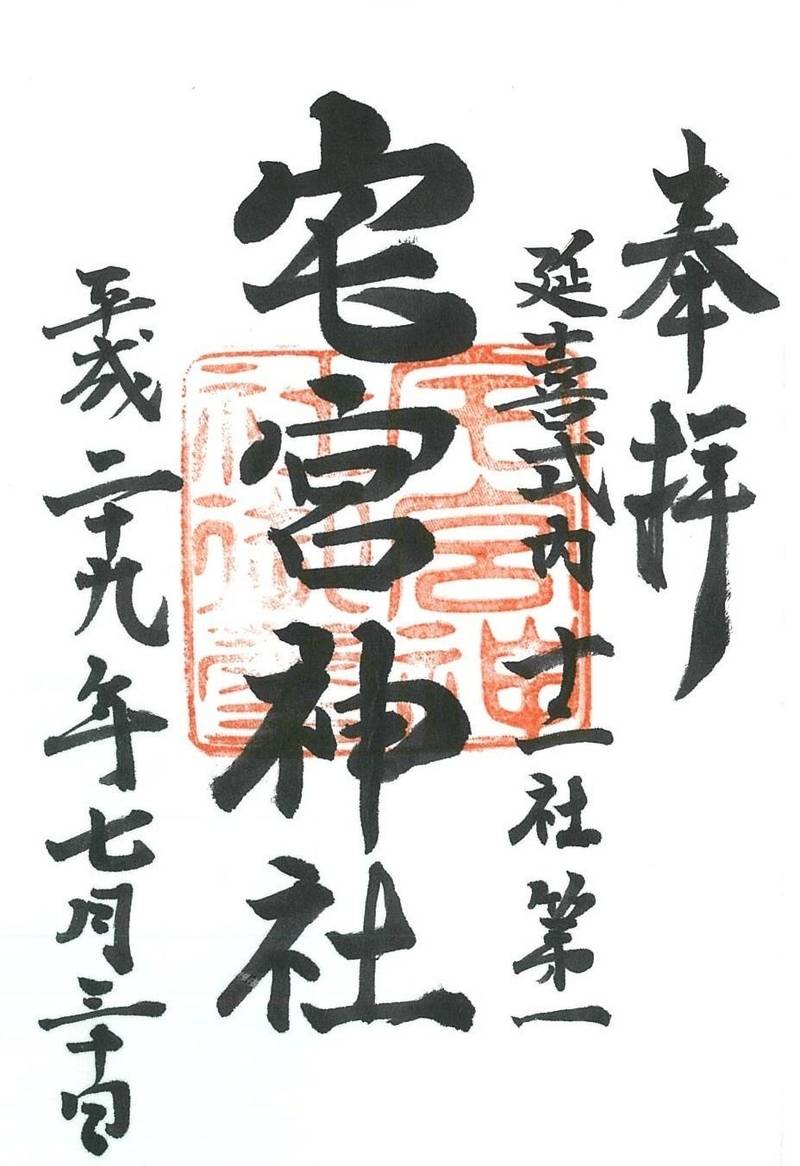 奉拝
延喜式内 十二社 第一
宅宮神社
平成二十九年七月三十日